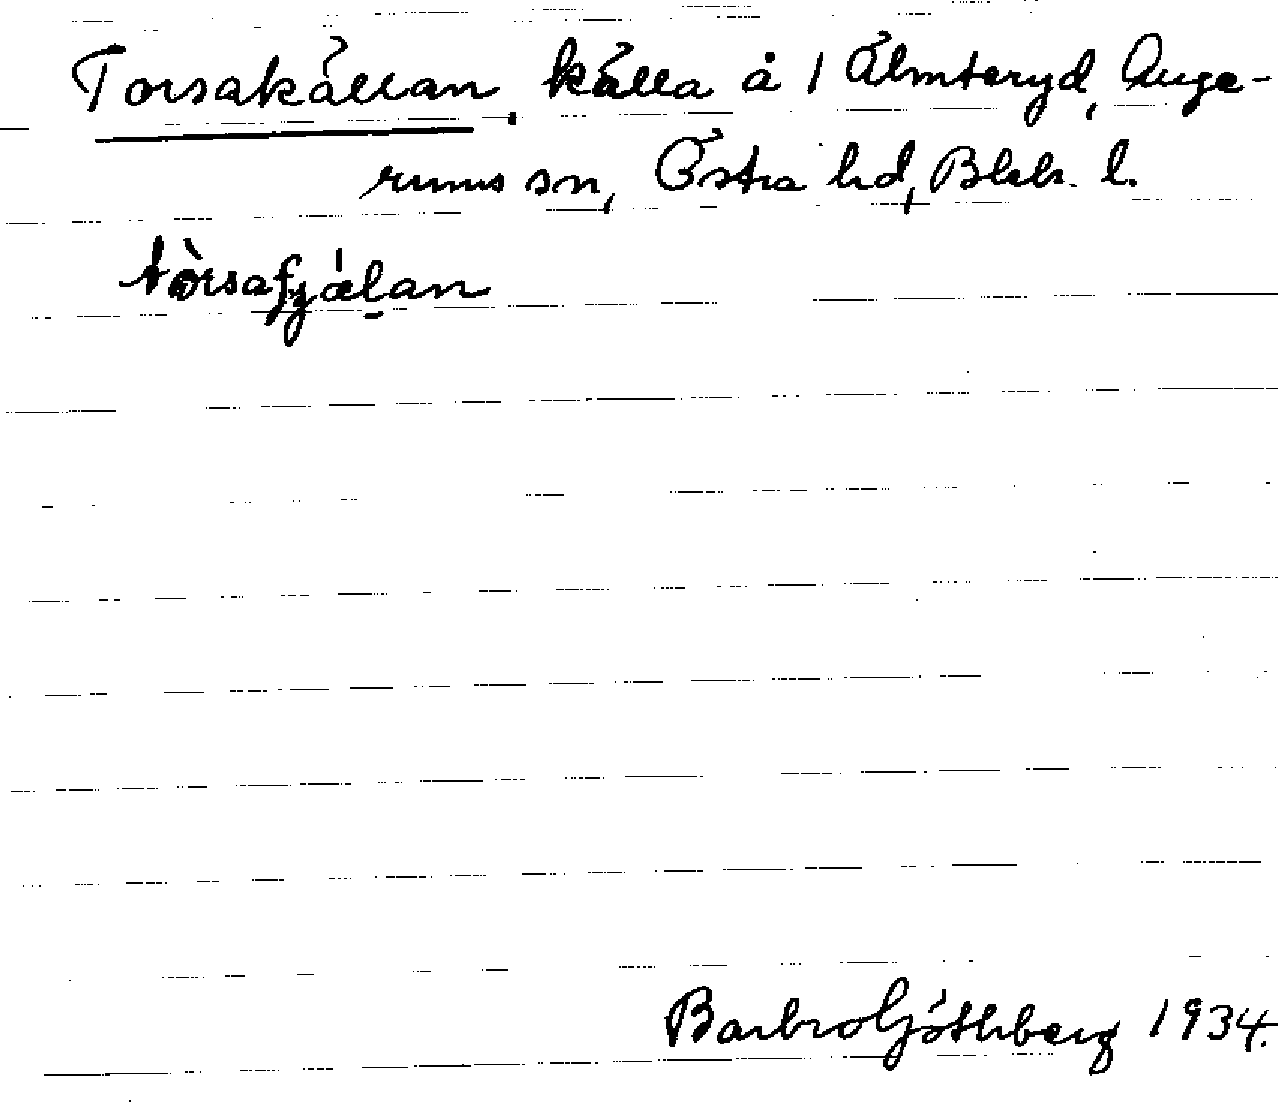 Torsakällan, källa å 1 Älmteryd, Auge-
rums sn, Östra hd, Blek. l.
tòrsafʒǽlan
Barbro Göthberg 1934.